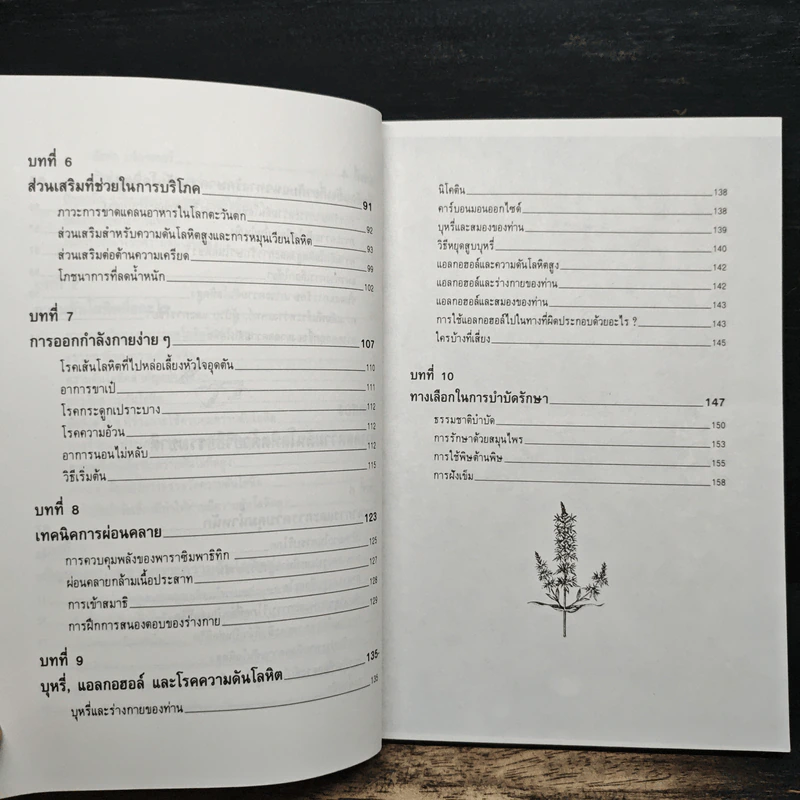 บทที่ 6
ส่วนเสริมที่ช่วยในการบริโภค 91
ภาวะการขาดแคลนอาหารในโลกตะวันตก 92
ส่วนเสริมสำหรับความดันโลหิตสูงและการหมุนเวียนโลหิต 93
ส่วนเสริมต่อต้านความเครียด 99
โภชนาการที่ลดน้ำหนัก 102
บทที่ 7
การออกกำลังกายง่าย ๆ 107
โรคเส้นโลหิตที่ไปหล่อเลี้ยงหัวใจอุดตัน 110
อาการขาเป๋ 111
โรคกระดูกเปราะบาง 112
โรคความอ้วน 112
อาการนอนไม่หลับ 112
วิธีเริ่มต้น 115
บทที่ 8
เทคนิคการผ่อนคลาย 123
การควบคุมพลังของพาราซิมพาธิทิก 125
ผ่อนคลายกล้ามเนื้อประสาท 127
การเข้าสมาธิ 128
การฝึกการสนองตอบของร่างกาย 129
บทที่ 9
บุหรี่, แอลกอฮอล์ และโรคความดันโลหิต 135
บุหรี่และร่างกายของท่าน 135
นิโคติน 138
คาร์บอนมอนออกไซด์ 138
บุหรี่และสมองของท่าน 139
วิธีหยุดสูบบุหรี่ 140
แอลกอฮอล์และความดันโลหิตสูง 142
แอลกอฮอล์และร่างกายของท่าน 142
แอลกอฮอล์และสมองของท่าน 143
การใช้แอลกอฮอล์ไปในทางที่ผิดประกอบด้วยอะไร ? 143
ใครบ้างที่เสี่ยง 145
บทที่ 10
ทางเลือกในการบำบัดรักษา 147
ธรรมชาติบำบัด 150
การรักษาด้วยสมุนไพร 153
การใช้พิษต้านพิษ 155
การฝังเข็ม 158